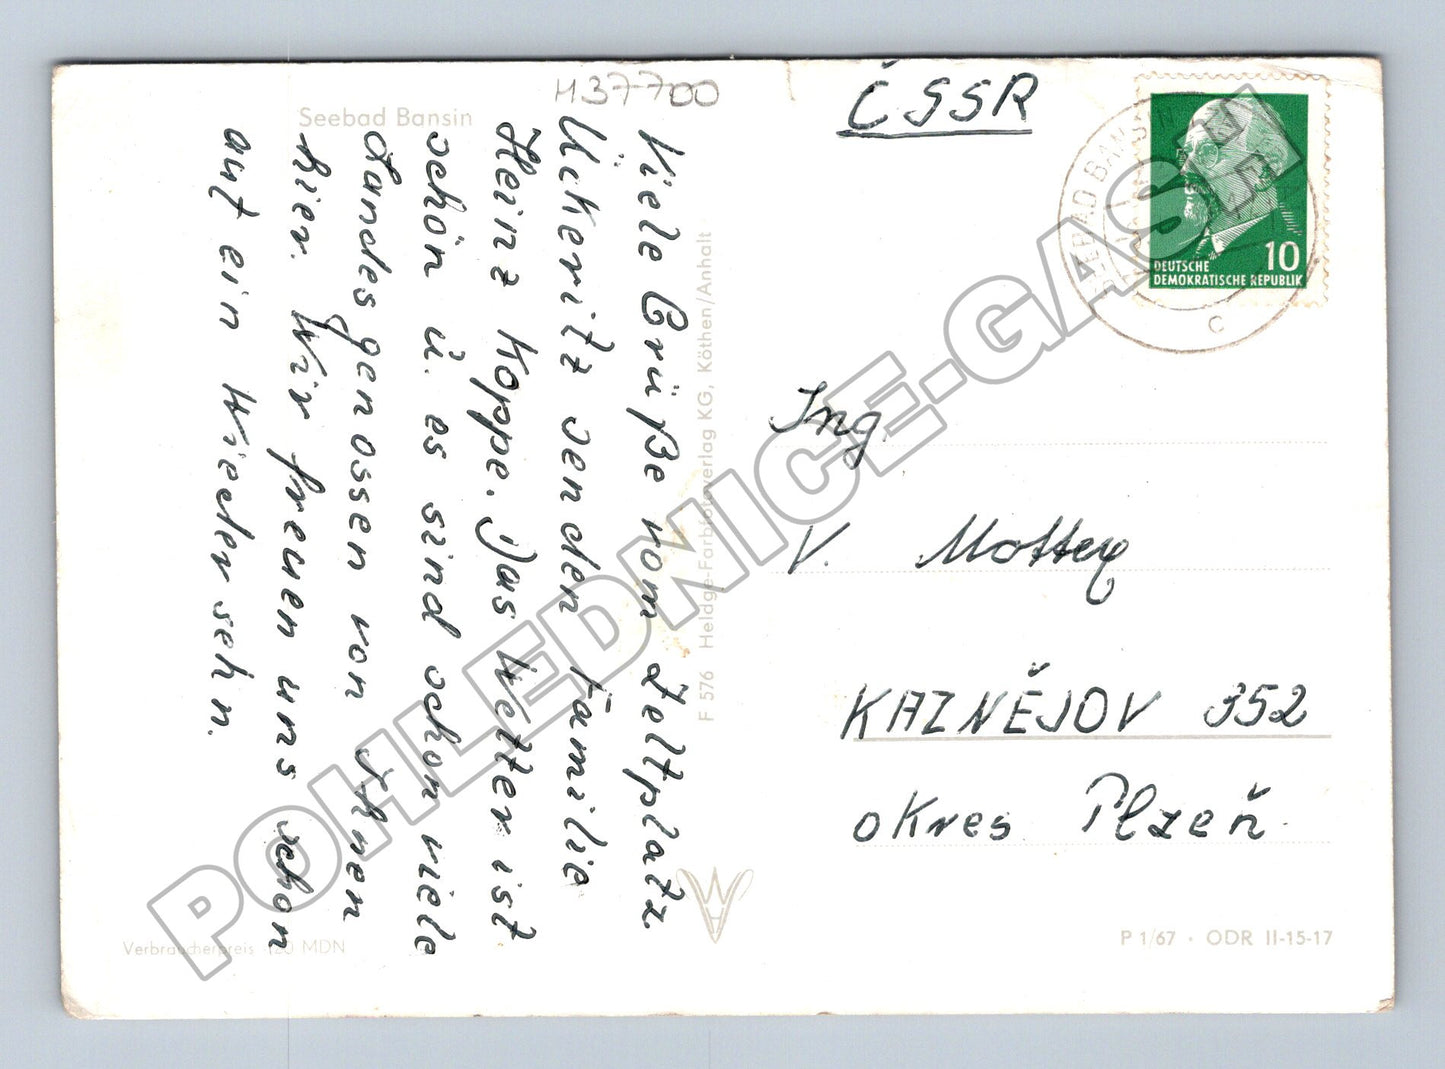 Seebad Bansin
H37700
Viele Grüße vom Zeltplatz
Ückeritz senden Familie
Heinz Koppe. Das Wetter ist
schön u. es sind schon viele
Landesgenossen von Ihnen
hier. Wir freuen uns schon
auf ein Wiedersehn.
Verbraucherpreis MDN
F 576 Heldge-Farbfotoverlag KG, Köthen/Anhalt
ČSSR
SEEBAD BANSIN
c
10
DEUTSCHE
DEMOKRATISCHE REPUBLIK
Ing.
V. Mottey
KAZNĚJOV 352
okres Plzeň.
P 1/67 · ODR II-15-17
POHLEDNICE-GASH